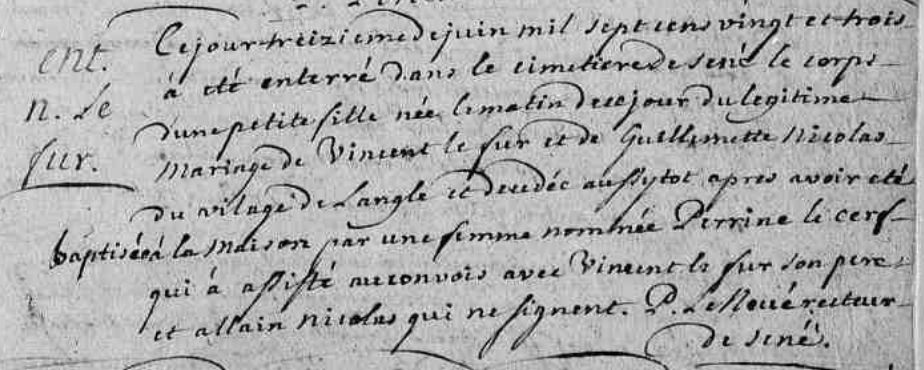 ent.
n. Le
fur.
Ce jour treizieme de juin mil sept cens vingt et trois
à eté enterré dans le cimetiere de sené le corps
d'une petite fille née le matin de ce jour du legitime
Mariage de Vincent le fur et de Guillemette Nicolas
du vilage de Langle et decedée aussytot apres avoir eté
baptisée à la maison par une femme nommée Perrine le Cerf
qui à assisté au convois avec Vincent le fur son pere
et allain Nicolas qui ne signent. P. recteur
de sené.